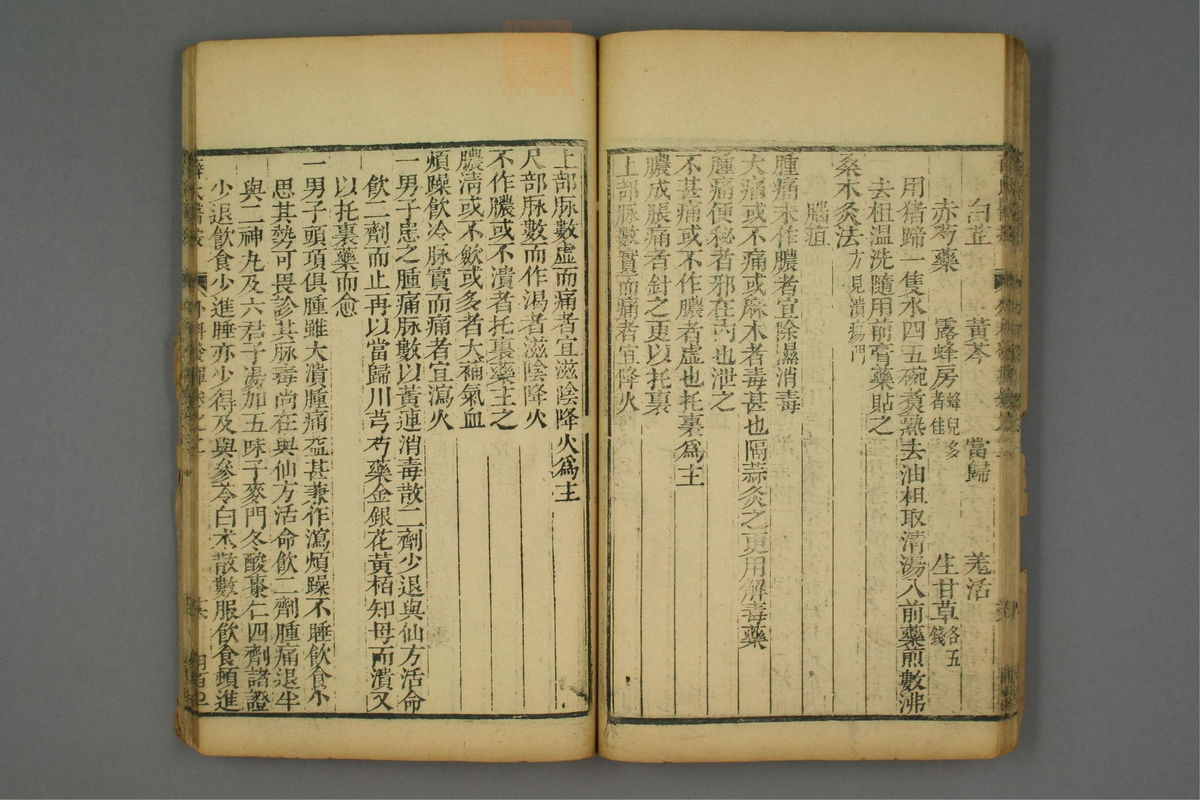 白芷　黃芩　當歸　羌活
赤芍藥　露蜂房蜂兒多者佳　生甘草各五錢
用猪蹄一隻水四五碗煑熟去油柤取清湯入前藥煎數沸
去柤温洗隨用前膏藥貼之
桑木灸法方見潰瘍門
腦疽
腫痛未作膿者宜除濕消毒
大痛或不痛或麻木者毒甚也隔蒜灸之更用解毒藥
腫痛便秘者邪在内也泄之
不甚痛或不作膿者虛也托裏爲主
膿成脹痛者針之更以托裏
上部脉數實而痛者宜降火
上部脉數虛而痛者宜滋陰降火爲主
尺部脉數而作渴者滋陰降火
不作膿或不潰者托裏藥主之
膿清或不斂或多者大補氣血
煩躁飲冷脉實而痛者宜瀉火
一男子患之腫痛脉數以黃連消毒散二劑少退與仙方活命
飲二劑而止再以當歸川芎芍藥金銀花黃栢知母而潰又
以托裏藥而愈
一男子頭項俱腫雖大潰腫痛益甚兼作瀉煩躁不睡飲食少
思其勢可畏診其脉毒尚在與仙方活命飲二劑腫痛退半
與二神丸及六君子湯加五味子麥門冬酸棗仁四劑諸證
少退飲食少進睡亦少得及與參苓白术散數服飲食頓進